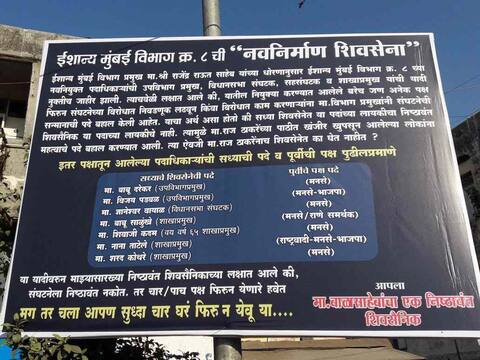 ईशान्य मुंबई विभाग क्र. ८ ची "नवनिर्माण शिवसेना"
ईशान्य मुंबई विभाग प्रमुख मा.श्री राजेंद्र राऊत साहेब यांच्या धोरणानुसार ईशान्य मुंबई विभाग क्र. ८ च्या
नवनियुक्त पदाधिकाऱ्यांची उपविभाग प्रमुख, विधानसभा संघटक, सहसंघटक व शाखाप्रमुख यांची यादी
नुक्तीच जाहीर झाली. त्यावेळी लक्षात आले की, यातील नियुक्त्या करण्यात आलेले बरेच जण अनेक पक्ष
फिरुन संघटनेच्या विरोधात निवडणूक लढवून किंवा विरोधात काम करणाऱ्यांना मा.विभाग प्रमुखांनी संघटनेची
सन्मानाची पदे बहाल केली आहेत. याचा अर्थ असा होतो की सध्या शिवसेनेत या पदांच्या लायकीचा निष्ठावंत
शिवसैनिक या पदाच्या लायकीचे नाही. त्यामुळे मा.राज ठाकरेंच्या पाठीत खंजीर खुपसून आलेल्या लोकांना
महत्वाचे पदे बहाल करण्यात आली. त्या ऐवजी मा.राज ठाकरेंनाच शिवसेनेत का घेत नाहीत ?
इतर पक्षातून आलेल्या पदाधिकाऱ्यांची सध्याची पदे व पूर्वीची पक्ष पुढीलप्रमाणे
सध्याचे शिवसेनेती पदे पूर्वीचे पक्ष पदे
मा. बाबू दरेकर (उपविभागप्रमुख) (मनसे)
मा. विजय पडवळ (उपविभागप्रमुख) (मनसे-भाजपा)
मा. ज्ञानेश्वर वायाळ (विधानसभा संघटक) (मनसे)
मा. बाबू साळुंखे (शाखाप्रमुख) (मनसे/राणे समर्थक)
मा. शिवाजी कदम (वय वर्ष ६५ शाखाप्रमुख) (मनसे)
मा. नाना ताटेले (शाखाप्रमुख) (राष्ट्रवादी-मनसे-भाजपा)
मा. शरद कोथरे (शाखाप्रमुख) (मनसे)
या यादीवरुन माझ्यासारख्या निष्ठावंत शिवसैनिकाच्या लक्षात आले की,
संघटनेला निष्ठावंत नकोत. तर चार/पाच पक्ष फिरुन येणारे हवेत
मग तर चला आपण सुध्दा चार घरं फिरुन येवू या....
आपला
मा.बाळासाहेबांचा एक निष्ठावंत
शिवसैनिक